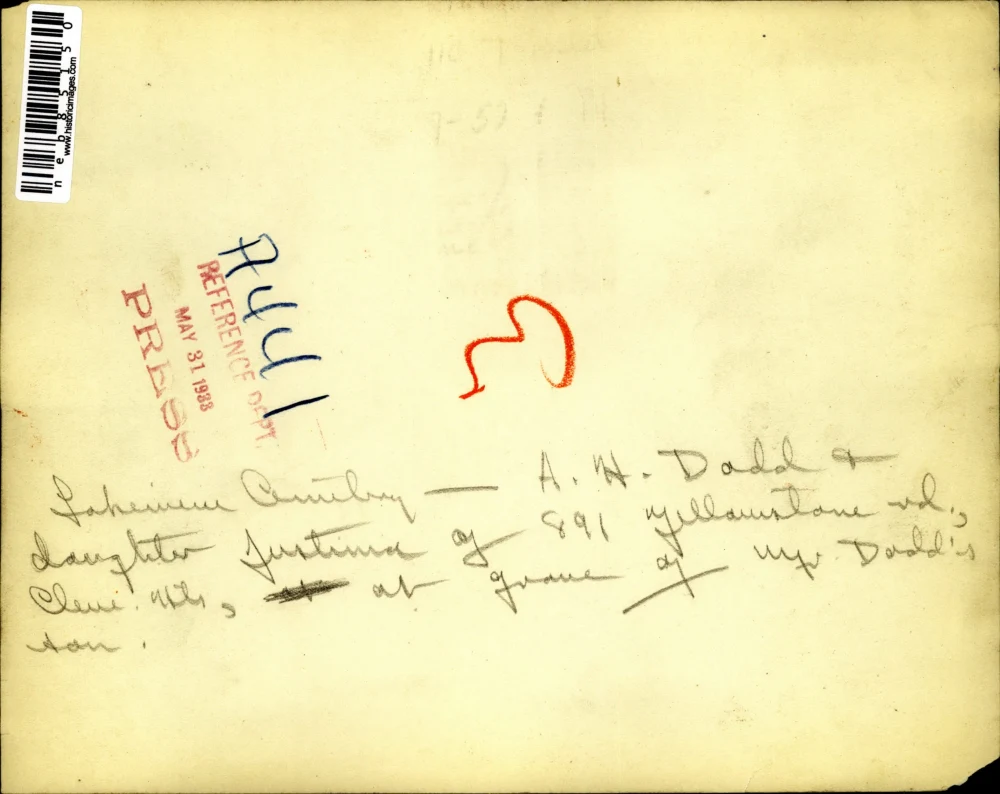 neb85150
www.historicimages.com
A441
REFERENCE DEPT.
MAY 31 1938
PRESS
3
Lakeview Cemetery — A. H. Dodd &
daughter Justina of 891 Yellowstone rd.,
Cleve. Hts, at grave of Mr. Dodd's
son.